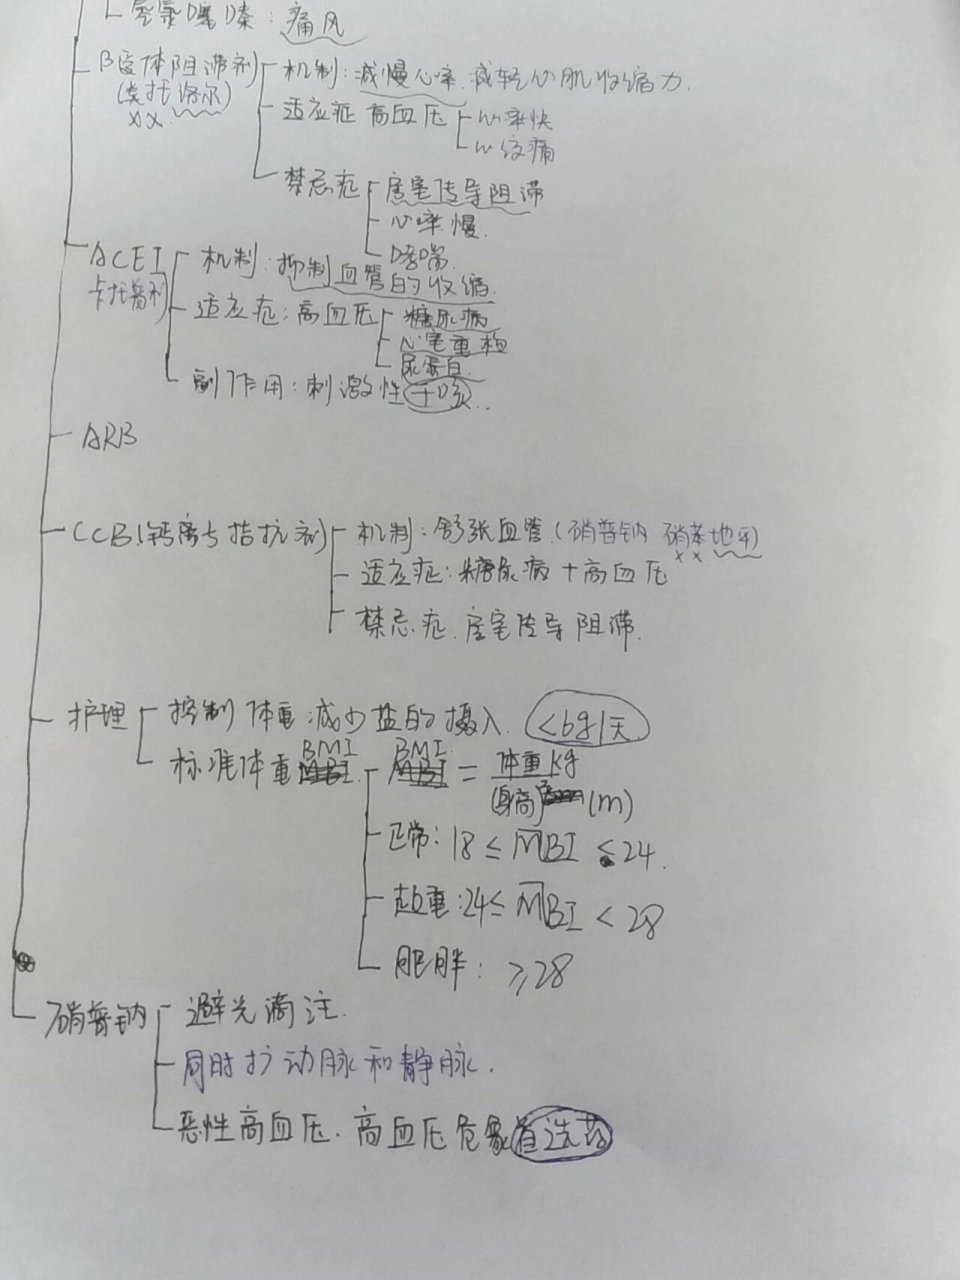 氢氯噻嗪：痛风
β受体阻滞剂
(美托洛尔)
××
机制：减慢心率.减轻心肌收缩力.
适应症 高血压
心率快
心绞痛
禁忌症
房室传导阻滞
心率慢.
哮喘.
ACEI
卡托普利
机制：抑制血管的收缩.
适应症：高血压
糖尿病
心室重构
尿蛋白.
副作用：刺激性干咳..
ARB
CCB(钙离子拮抗剂)
机制：舒张血管.(硝普钠 硝苯地平)
××
适应症：糖尿病+高血压
禁忌症.房室传导阻滞.
护理
控制体重:减少盐的摄入. <6g/天
标准体重 BMI.
BMI. = 体重kg
(身高)² (m)
正常：18≤MBI≤24.
超重:24≤MBI<28
肥胖：≥28
硝普钠
避光滴注.
同时扩动脉和静脉.
恶性高血压.高血压危象首选药